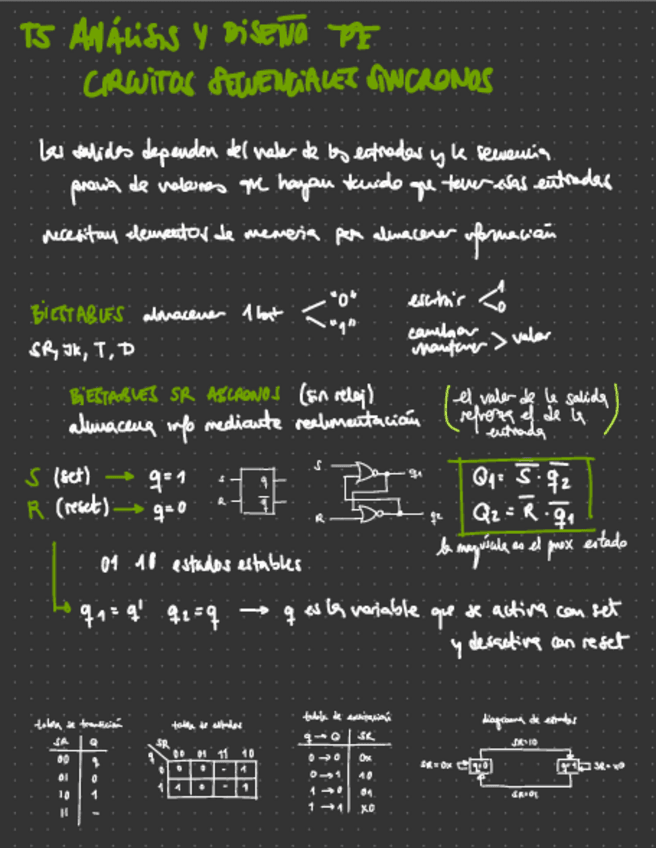 T5 ANÁLISIS Y DISEÑO DE
CIRCUITOS SECUENCIALES SÍNCRONOS
Las salidas dependen del valor de las entradas y la secuencia
previa de valores que hayan tenido que tener esas entradas
necesitan elementos de memoria para almacenar información
BIESTABLES almacenar 1 bit < "0" "1"
escribir < 1 0
SR, JK, T, D
cambiar mantener > valor
BIESTABLES SR ASÍCRONOS (sin reloj)
almacena info mediante realimentación
(el valor de la salida
refuerza el de la
entrada)
S (set) → q=1
R (reset) → q=0
S R q q̅
S R q1 q2
Q1 = S̅ · q̅2
Q2 = R̅ · q̅1
la mayúscula es el prox estado
01 10 estados estables
q1 = q' q2 = q → q es la variable que se activa con set
y desactiva con reset
tabla de transición
SR Q
00 q
01 0
10 1
11 -
tabla de estados
SR 00 01 11 10
q
0 0 0 - 1
1 1 0 - 1
tabla de excitación
q→Q SR
0→0 0x
0→1 10
1→0 01
1→1 x0
diagrama de estados
SR=10
SR=0x q=0 q=1 SR=x0
SR=01